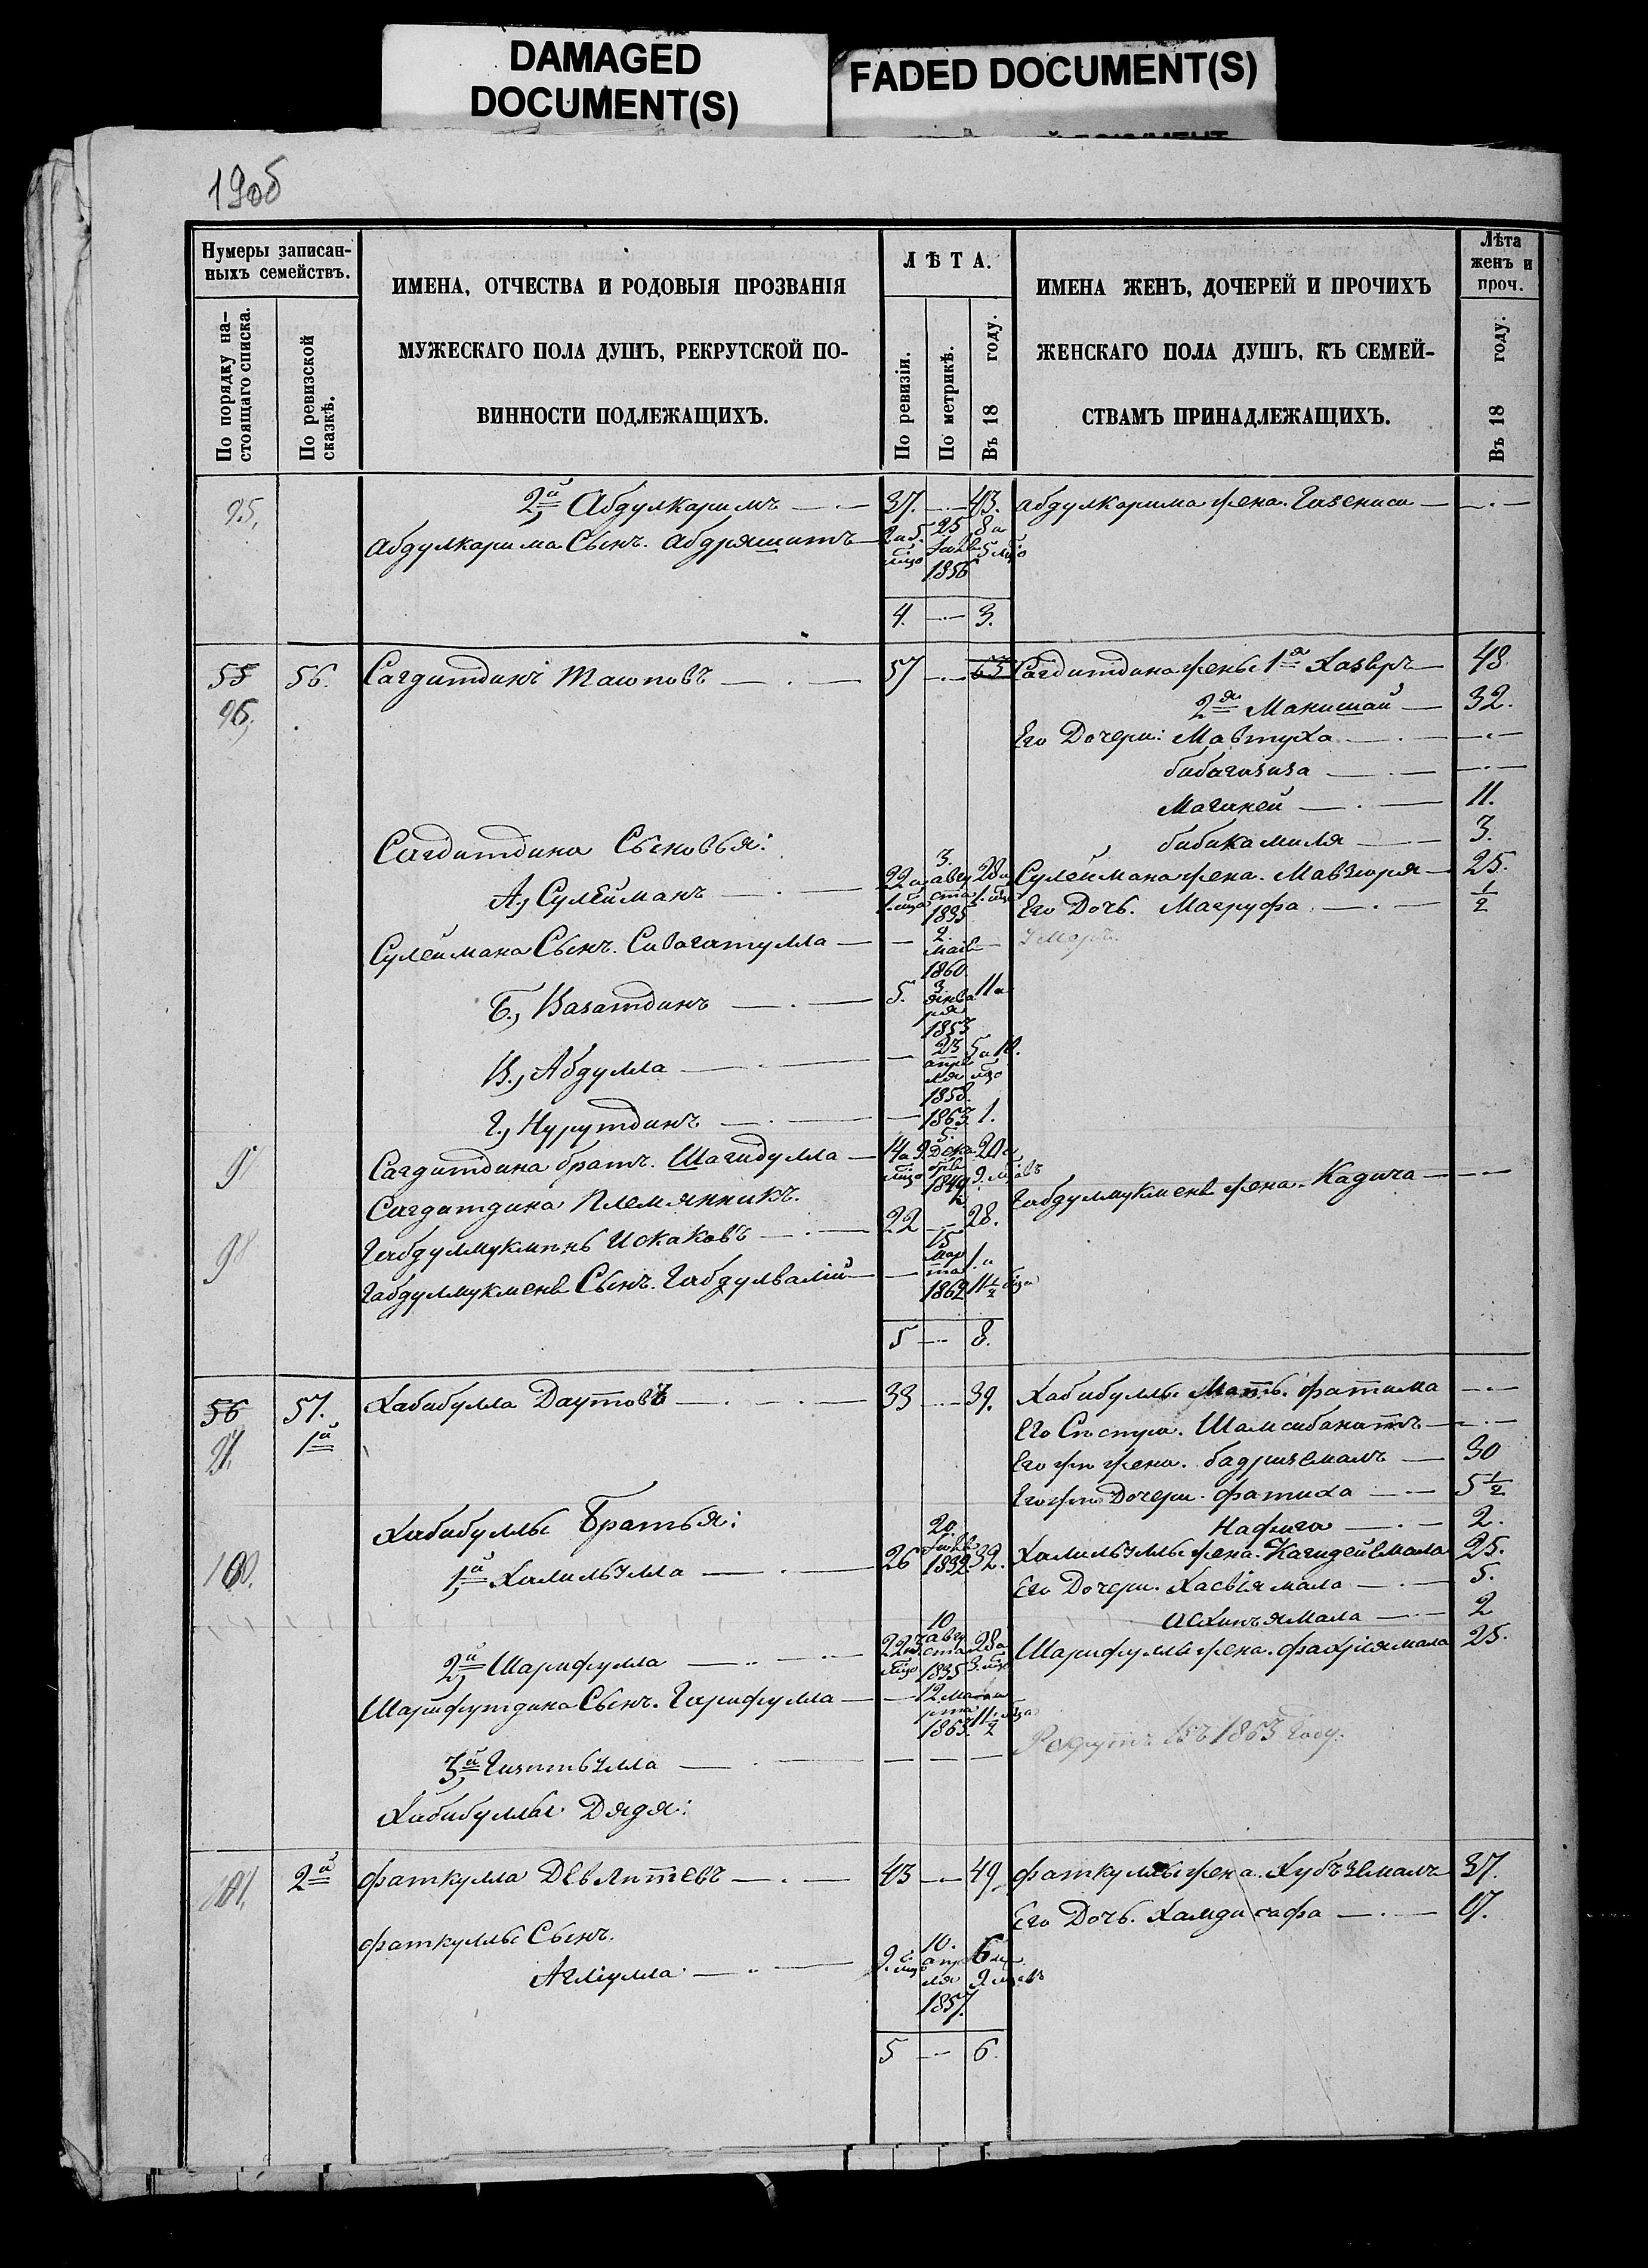 DAMAGED
DOCUMENT(S)
FADED DOCUMENT(S)
190б
Нумеры записан-
ныхъ семействъ.
По порядку на-
стоящаго списка.
По ревизской
сказкѣ.
ИМЕНА, ОТЧЕСТВА И РОДОВЫЯ ПРОЗВАНІЯ
МУЖЕСКАГО ПОЛА ДУШЪ, РЕКРУТСКОЙ ПО-
ВИННОСТИ ПОДЛЕЖАЩИХЪ.
ЛѢТА.
По ревизіи.
По метрикѣ.
Въ 18 году.
ИМЕНА ЖЕНЪ, ДОЧЕРЕЙ И ПРОЧИХЪ
ЖЕНСКАГО ПОЛА ДУШЪ, КЪ СЕМЕЙ-
СТВАМЪ ПРИНАДЛЕЖАЩИХЪ.
Лѣта
женъ и
проч.
Въ 18 году.
95. 2й Абдулкаримъ 37. 43. Абдулкарима жена.
Абдулкарима Сынъ. Абдряшитъ 2 и 5. 25 8 и
1856
4. 3.
55 56. Сагдитдинъ Таюповъ 57 63 Сагдитдина жены 1я Хазвръ 48
96, 2я Манишай 32.
Его Дочери: Мавтуха
бибагазиза
Маганей 11.
бибикамиля 3.
Сагдитдина Сыновья:
А, Сулейманъ 22 и 1. мцо 3. авгу ста 1835 28 и 1. мцо Сулеймана жена. Мавзюря 25.
Его Дочь. Магруфа 1/2
Сулеймана Сынъ. Сивагатулла 2. мая 1860 Умеръ.
Б., Вазатдинъ 5. 3 января 1853 11 и
В., Абдулла 23 апреля 1858. 5 и 10. мцо
Г., Нурутдинъ 1863 1.
Сагдитдина братъ. Шагидулла 14 и 9 мцо 5. дека 20 и 9. мцовъ
Сагдитдина Племянникъ.
98 Габдулмукминъ Искаковъ 22 28. Габдулмукмена жена. Кадича
Габдулмукмена Сынъ. Габдулвалій 15 марта 1862 1. и
5 8.
56 57. Хабибулла Даутовъ 33 39. Хабибуллы Мать. Фатима
1й Его Сестра. Шамсибанатъ
Его же жена. бадриземалъ 30
Его же Дочери. Фатиха 5 1/2
Нафига 2.
Хабибуллы Братья:
100. 1й Халильулла 26 20. 1832 32. Халильуллы жена. Кагидейемала 25.
Его Дочери. Хасвіямала 5.
Асхинъямала 2
2й Шарифулла 10 августа 1835 28 и 3. мцо Шарифуллы жена. Фахріямала 25.
Шарифутдина Сынъ. Гарифулла 12 марта 1863.
3й Рекрутъ въ 1863 году.
Хабибуллы Дядя:
101. 2й Фаткулла Девлитевъ 43 49. Фаткуллы жена. Хубъземалъ 37.
Его Дочь. Хамдисафа 17.
Фаткуллы Сынъ.
Аглулла 9. мцо 10. апреля 1857. 6 и 9 мцовъ
5 6.